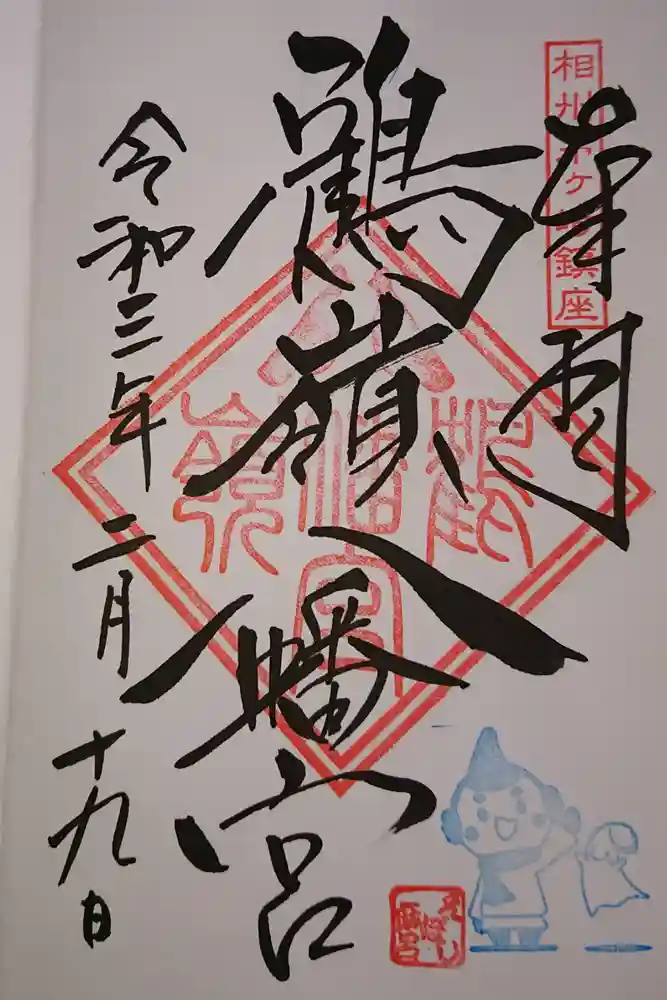 相州茅ヶ崎鎮座
奉拝
鶴嶺八幡宮
鶴
八幡宮
嶺
令和三年二月十九日